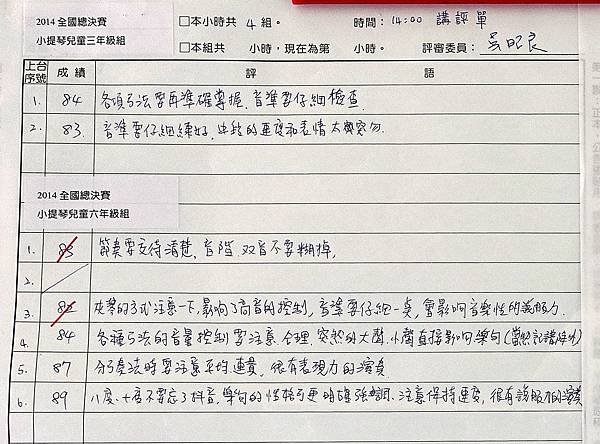 2014 全國總決賽
小提琴兒童三年級組
□本小時共 4 組。 時間：14:00 講評單
□本組共 小時，現在為第 小時。 評審委員：
上台序號 成績 評語
1. 84 各項弓法要再準確掌握，音準要仔細檢查
2. 83 音準要仔細練好，中段的速度和表情太匆匆
2014 全國總決賽
小提琴兒童六年級組
1. 85 節奏要交待清楚，音階、双音不要糊掉，
2.
3. 夾琴的方式注意一下，影響了高音的控制，音準要仔細一点，會影響音樂性的說服力
4. 84 各種弓法的音量控制要注意合理，突然的大聲、小聲直接影响樂句(當然記譜除外)
5. 87 分弓奏法時要注意平均連貫，很有表現力的演奏
6. 89 八度、十度不要忘了抖音，樂句的性格可更明確強調、注意保持速度，很有說服力的演奏